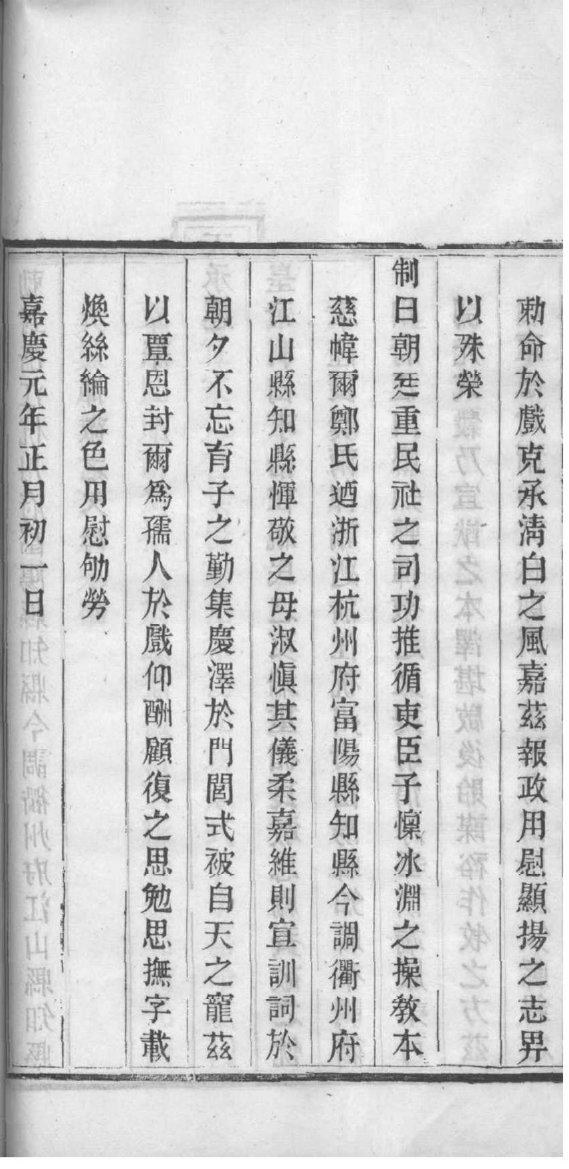 勅命於戲克承淸白之風嘉茲報政用慰顯揚之志畀
以殊榮
制曰朝廷重民社之司功推循吏臣子懍冰淵之操敎本
慈幃爾鄭氏迺浙江杭州府富陽縣知縣今調衢州府
江山縣知縣惲敬之母淑愼其儀柔嘉維則宣訓詞於
朝夕不忘育子之勤集慶澤於門閭式被自天之寵茲
以覃恩封爾爲孺人於戲仰酬顧復之思勉思撫字載
煥絲綸之色用慰劬勞
嘉慶元年正月初一日